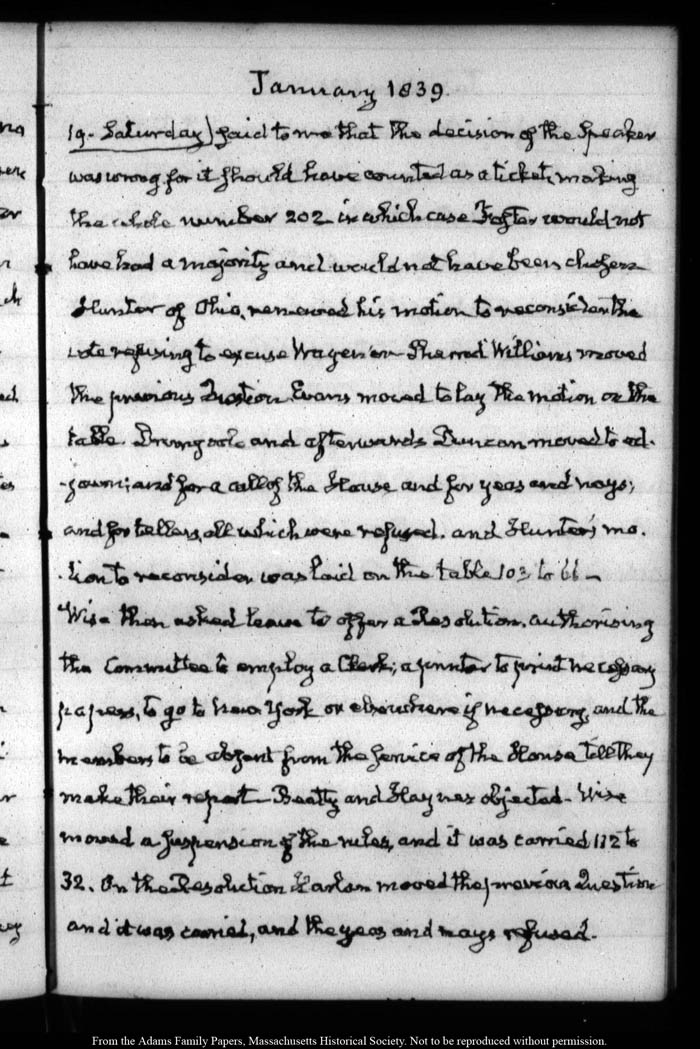 January 1839.
19. Saturday) said to me that the decision of the Speaker
was wrong for it should have counted as a ticket, making
the whole number 202 in which case Foster would not
have had a majority and would not have been chosen
Hunter of Ohio, renewed his motion to reconsider the
vote refusing to excuse Wagener Sherrod Williams moved
the previous Question Evans moved to lay the motion on the
table. Dromgoole and afterwards Duncan moved to ad-
-journ; and for a call of the House and for yeas and nays;
and for tellers, all which were refused. and Hunter's mo-
-tion to reconsider was laid on the table 103 to 66 —
Wise then asked leave to offer a Resolution, authorising
the Committee to employ a Clerk; a printer to print necessary
papers, to go to New York or elsewhere if necessary, and the
members to be absent from the service of the House till they
make their report — Beatty and Haynes objected — Wise
moved a suspension of the rules, and it was carried 112 to
32. On the Resolution Harlan moved the previous Question
and it was carried, and the yeas and nays refused.
From the Adams Family Papers, Massachusetts Historical Society. Not to be reproduced without permission.